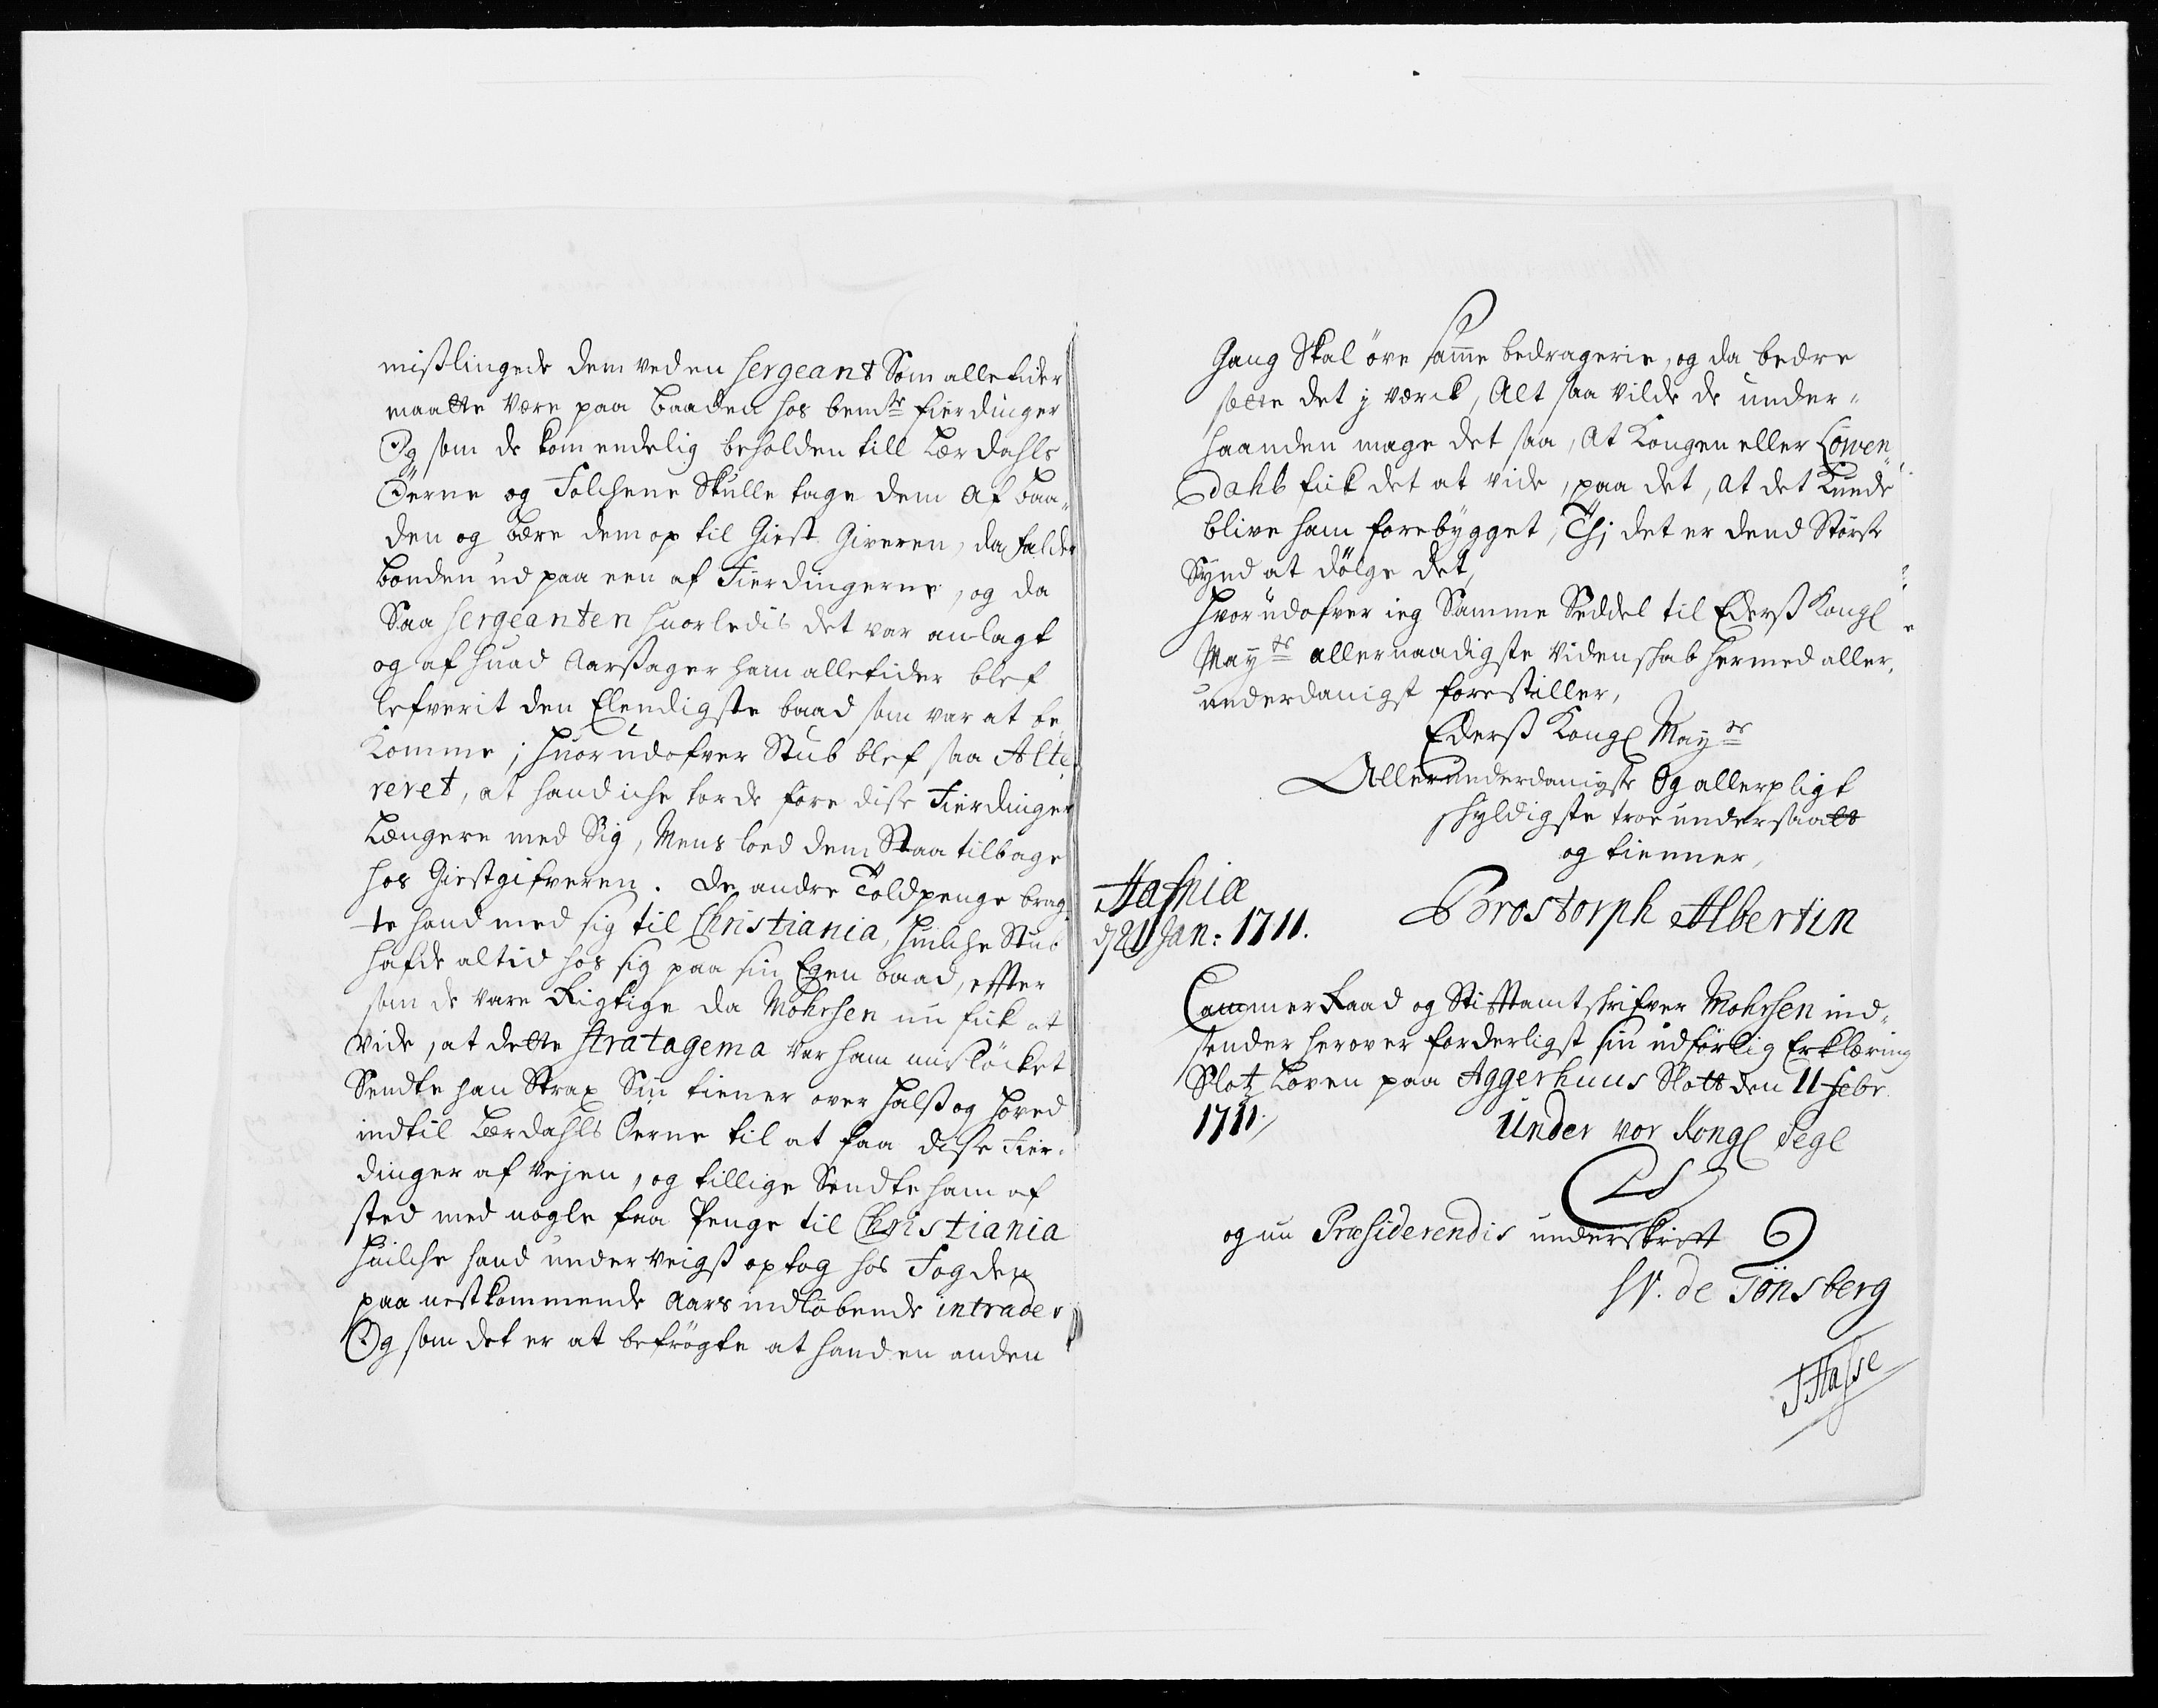 misslingede dem ved en sergeant Som alletider
maatte være paa baaden hos bemte fierdinger
Og som de kom endelig beholden till Lærdahls
Öerne og Folchene Skulle tage dem af baa„
den og bære dem op til Giest Giveren, da falder
bonden ud paa een af Fierdingerne, og da
Saa sergeanten huorledis det var anlagt
og af huad Aarsager ham alletider blef
lefverit den Elendigste baad som var at be„
komme; huorudofver Stub blef saa Alte„
reret, at hand iche torde före disse Fierdinger
Længere med Sig, Mens loed dem Staa tilbage
hos Giestgifveren. De andre Toldpenge brag„
te hand med sig til Christiania, huilche Stub
hafde altid hos sig paa sin Egen baad, effter
som de vare Rigtige da Mohrsen nu fick at
vide, at dette stratagema var ham misløcket
Sendte han Strax Sin tiener over halss og hoved
indtil Lærdahls Öerne til at faa disse Fier„
dinger af vejen, og tillige Sendte ham af
sted med nogle faa Penge til Christiania
huilche hand underveigss optog hos Fogden
paa nestkommende Aars indløbende intrader
Og som det er at befrögte at hand en anden
Gang Skal öve samme bedragerie, og da bedre
sætte det j værck, Alt saa vilde de under„
haanden mage det saa, At Kongen eller Löwen„
dahls fick det at vide, paa det, at det Kunde
blive ham forebygget, Thj det er dend Störste
Synd at dölge det,
hvorudofver ieg Samme Seddel til Ederss Kongl
Mayts allernaadigste videnskab hermed aller„
underdanigst forestiller,
Ederss Kongl Mayts
Allerunderdanigste Og allerpligt
skyldigste troe undersaatt
og tienner,
Hafniæ
d 21 Jan: 1711.
Brostorph Albertin
CammerRaad og Stifftamtskrifver Mohrsen ind„
sender herover forderligst sin udförlig Erklæring
Slotz Loven paa Aggerhuus Slott den 11 febr
1711.
Under vor Kongl Segl
LS
og nu Præsiderendis underskrift
W. de Tönsberg
THasse